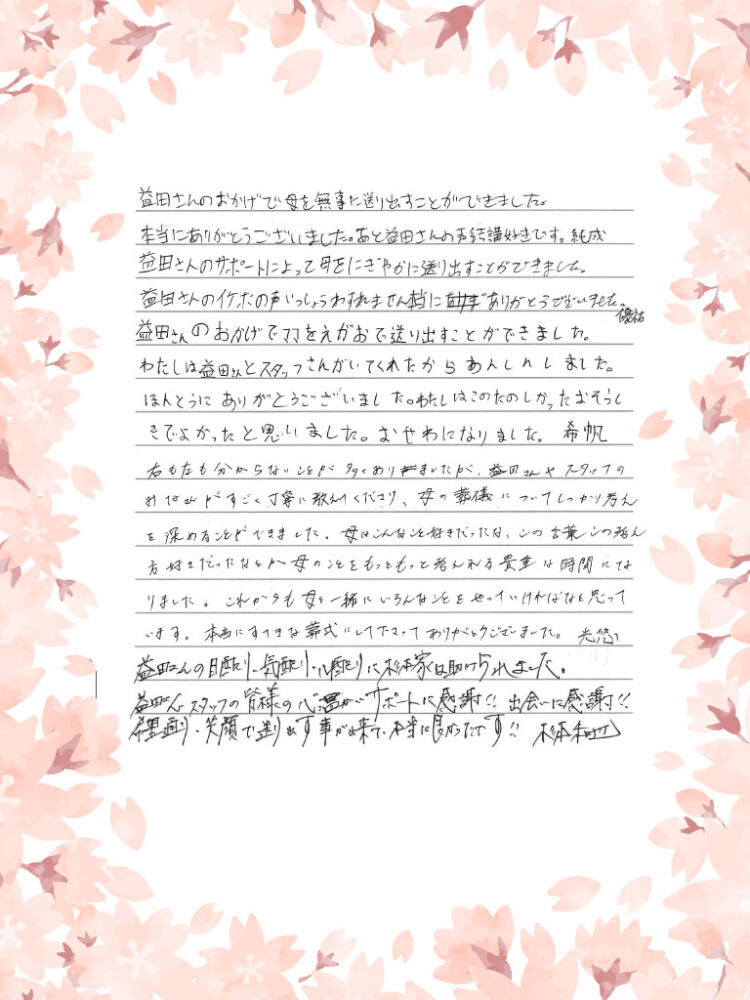 益田さんのおかげで母を無事に送り出すことができました。
本当にありがとうございました。あと益田さんの手結構好きです。純成
益田さんのサポートによって母をにぎやかに送り出すことができました。
益田さんのイケボの声いっしょうわすれません本当にありがとうございました。
優祐
益田さんのおかげでママをえがおで送り出すことができました。
わたしは益田さんとスタッフさんがいてくれたからあんしんしました。
ほんとうにありがとうございました。わたしはこのたのしかったおそうし
きでよかったと思いました。おせわになりました。希帆
右も左も分からないことが多くありましたが、益田さんやスタッフの
みなさんがすごく丁寧に教えてくださり、母の葬儀についてしっかり考え
を深めることができました。母はこんなこと好きだったな、この言葉この考え
方好きだったなとか母のことをもっともっと考えれる貴重な時間にな
りました。これからも母と一緒にいろんなことをやっていければなと思って
います。本当にすてきな葬式にして下さってありがとうございました。光悠
益田さんの目配り・気配り・心配りに杉本家は助けられました。
益田さん、スタッフの皆様の心温かいサポートに感謝!! 出会いに感謝!!
希望通り、笑顔で送り出す事が出来て、本当に良かったです!! 杉本